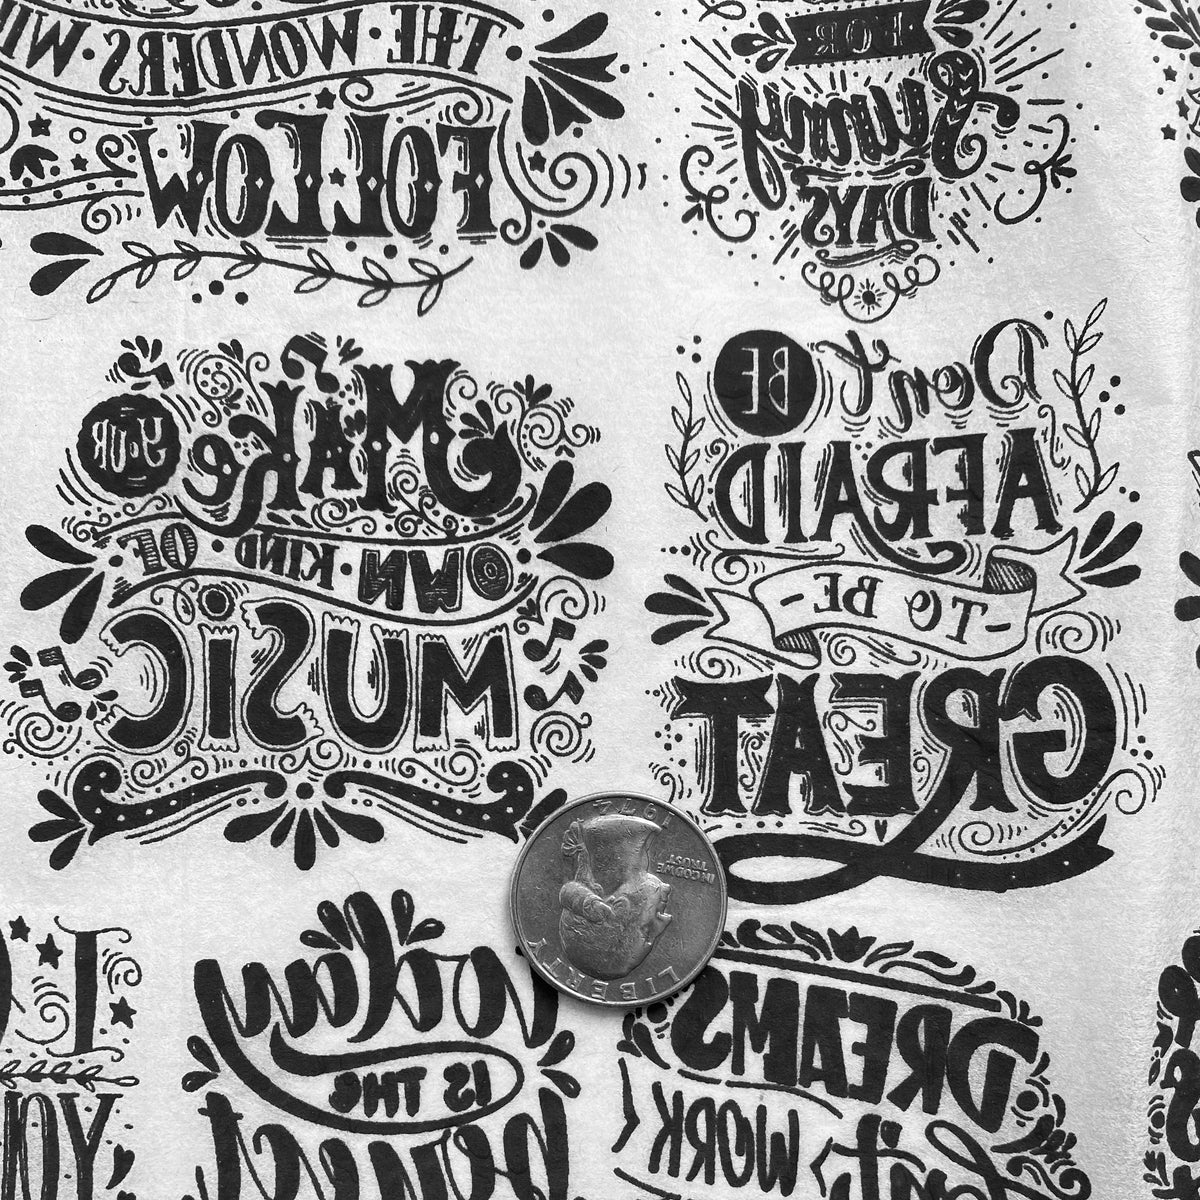 THE WONDERS WI
FOLLOW
FOR
Sunny
DAYS
MAKe
YOUR
OWN · KIND · OF
MUSiC
Don't BE
AFRAID
- TO BE -
GREAT
1974
IN GOD WE
TRUST
LIBERTY
I
YOU
today
IS THE
DREAMS
WORK